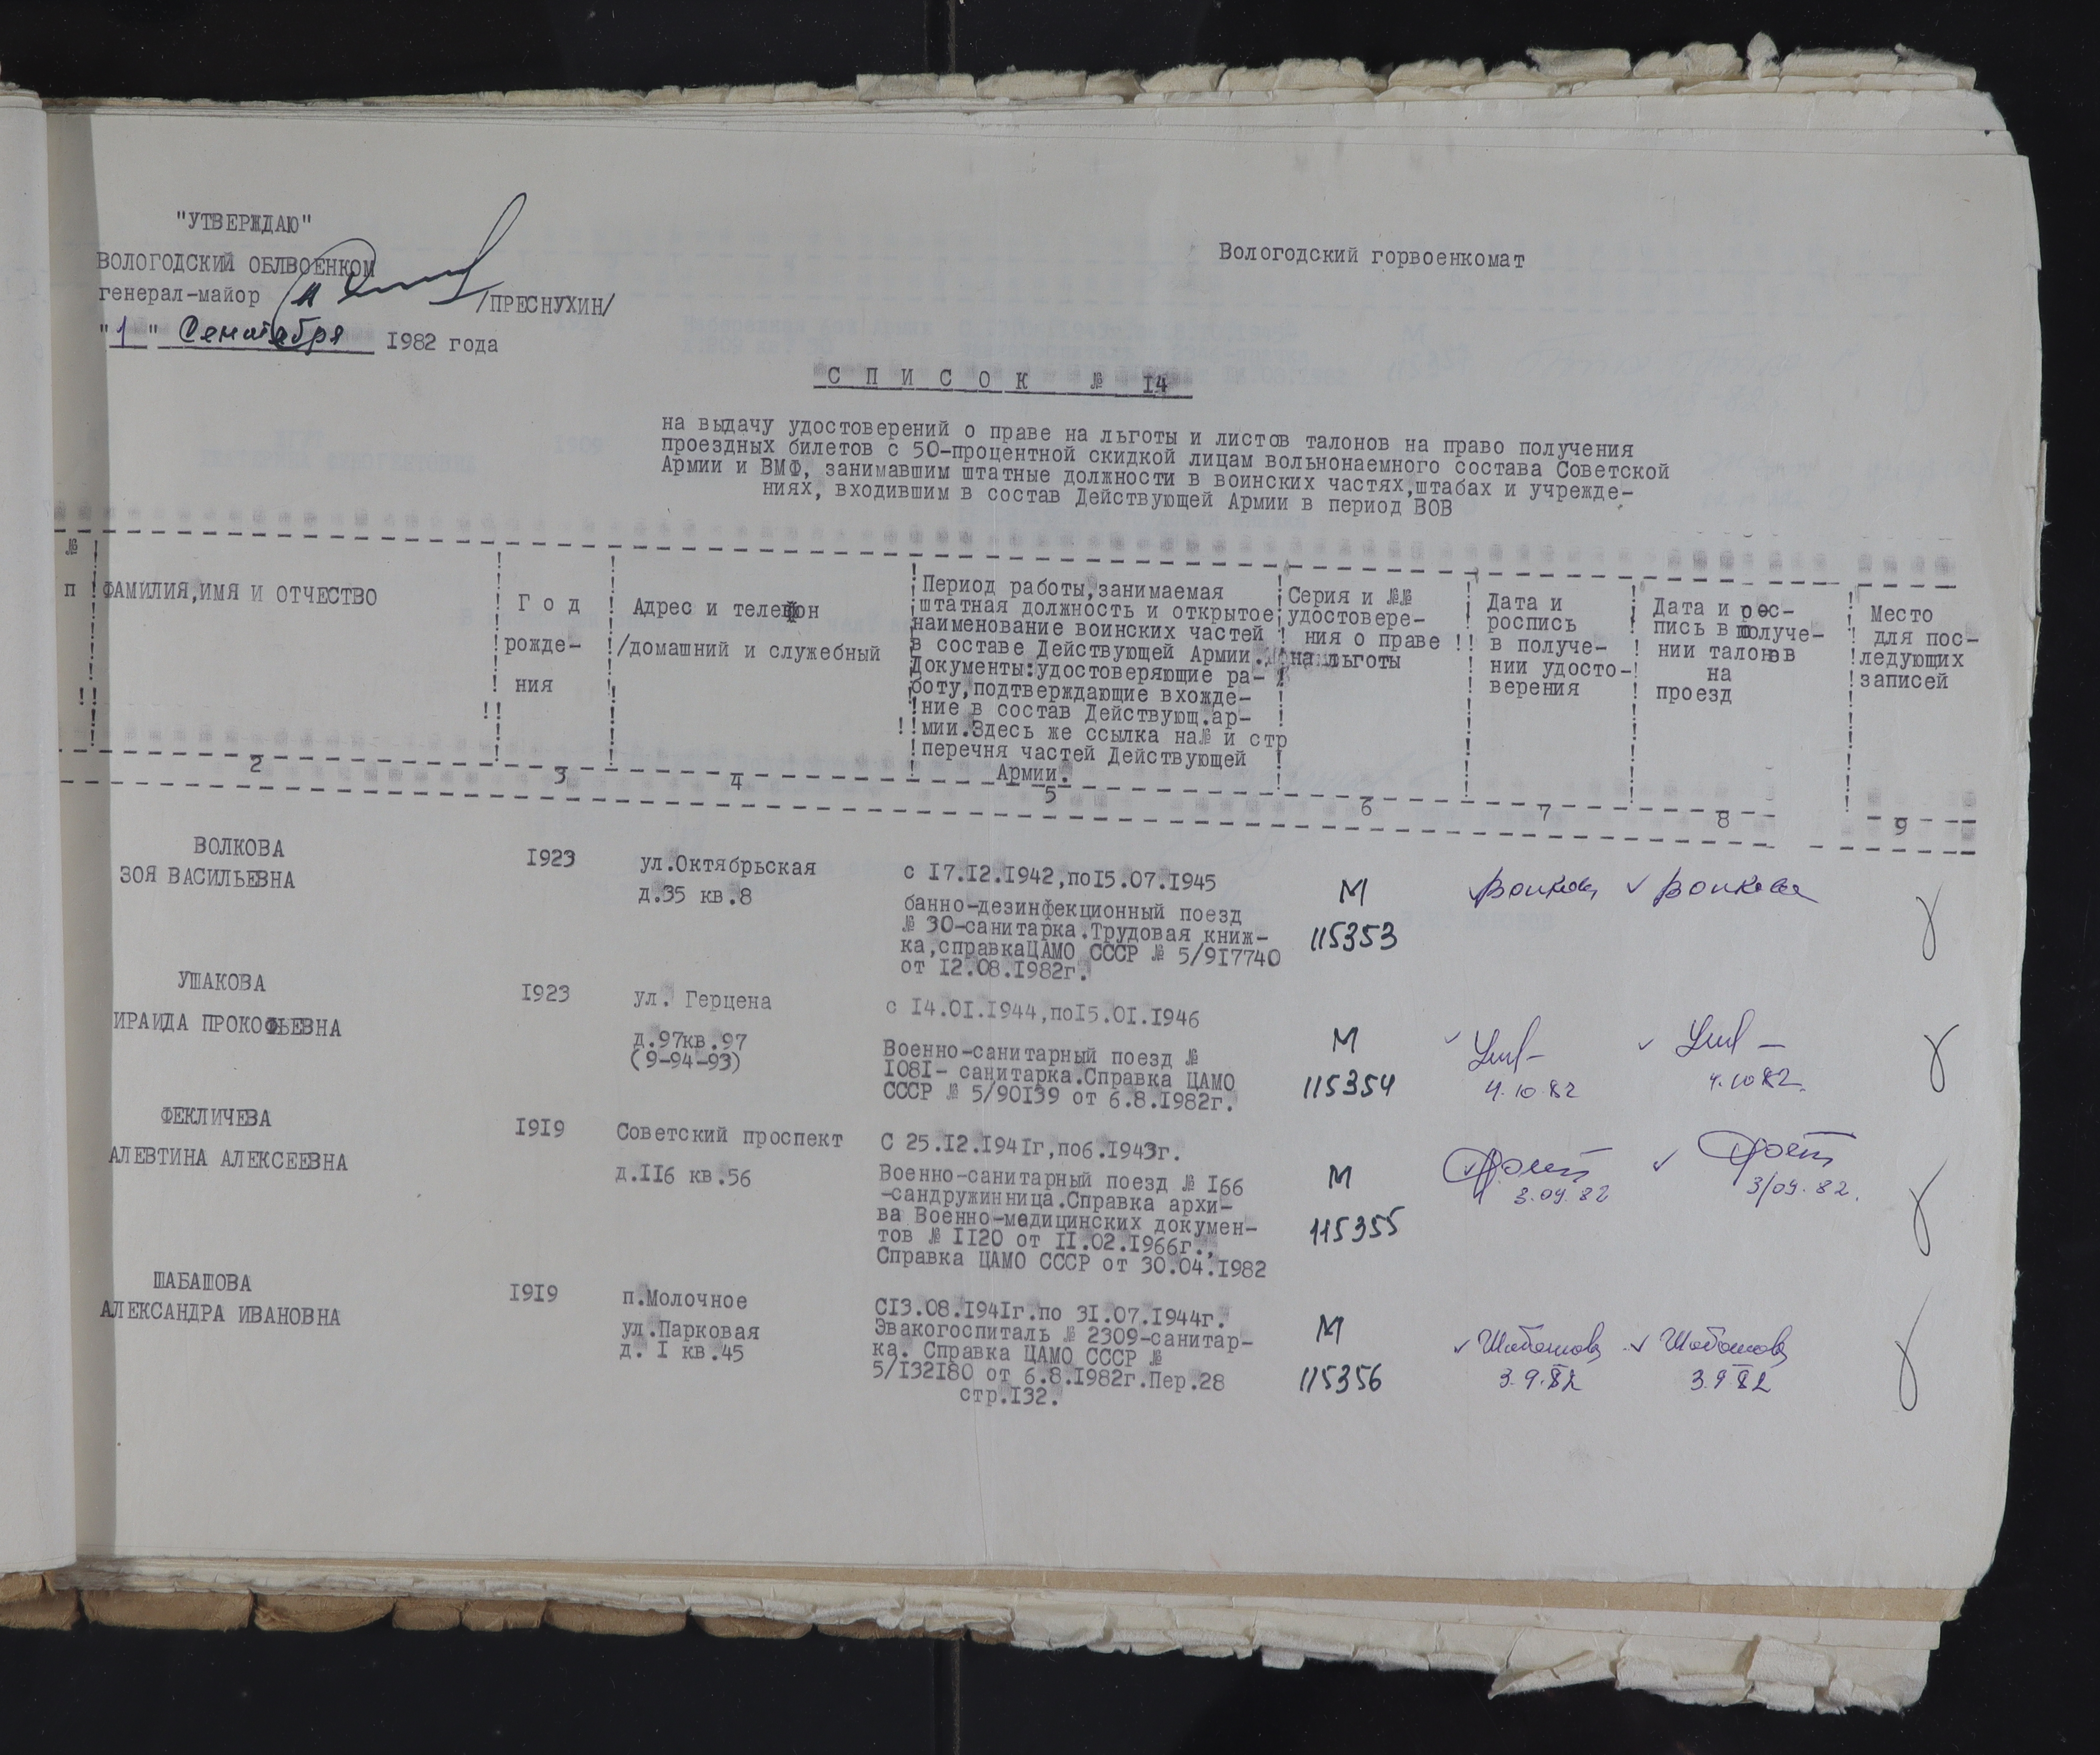 "УТВЕРЖДАЮ"
ВОЛОГОДСКИЙ ОБЛВОЕНКОМ
генерал-майор /ПРЕСНУХИН/
"1" Сентября I982 года
Вологодский горвоенкомат
С П И С О К № I4
на выдачу удостоверений о праве на льготы и листов талонов на право получения
проездных билетов с 50-процентной скидкой лицам вольнонаемного состава Советской
Армии и ВМФ, занимавшим штатные должности в воинских частях,штабах и учрежде-
ниях, входившим в состав Действующей Армии в период ВОВ
№
п
ФАМИЛИЯ,ИМЯ И ОТЧЕСТВО
Г о д
рожде-
ния
Адрес и телефон
/домашний и служебный
Период работы,занимаемая
штатная должность и открытое
наименование воинских частей
в составе Действующей Армии.
Документы:удостоверяющие ра-
боту,подтверждающие вхожде-
ние в состав Действующ.ар-
мии.Здесь же ссылка на№ и стр
перечня частей Действующей
Армии.
Серия и №№
удостовере-
ния о праве
на льготы
Дата и
роспись
в получе-
нии удосто-
верения
Дата и рос-
пись в получе-
нии талонов
на
проезд
Место
для пос-
ледующих
записей
2 3 4 5 6 7 8 9
ВОЛКОВА
ЗОЯ ВАСИЛЬЕВНА
I923
ул.Октябрьская
д.35 кв.8
с I7.I2.I942,поI5.07.I945
банно-дезинфекционный поезд
№ 30-санитарка.Трудовая книж-
ка,справкаЦАМО СССР № 5/9I7740
от I2.08.I982г.
М
115353
Волкова Волкова
УШАКОВА
ИРАИДА ПРОКОФЬЕВНА
I923
ул. Герцена
д.97кв.97
(9-94-93)
с I4.0I.I944,поI5.0I.I946
Военно-санитарный поезд №
I08I- санитарка.Справка ЦАМО
СССР № 5/90I39 от 6.8.I982г.
М
115354
4.10.82
4.10 82.
ФЕКЛИЧЕВА
АЛЕВТИНА АЛЕКСЕЕВНА
I9I9
Советский проспект
д.II6 кв.56
С 25.I2.I94Iг,по6.I943г.
Военно-санитарный поезд № I66
-сандружинница.Справка архи-
ва Военно-медицинских докумен-
тов № II20 от II.02.I966г.,
Справка ЦАМО СССР от 30.04.I982
М
115355
3.09.82
3/09.82.
ШАБАШОВА
АЛЕКСАНДРА ИВАНОВНА
I9I9
п.Молочное
ул.Парковая
д. I кв.45
СI3.08.I94Iг.по 3I.07.I944г.
Эвакогоспиталь № 2309-санитар-
ка. Справка ЦАМО СССР №
5/I32I80 от 6.8.I982г.Пер.28
стр.I32.
М
115356
Шабашова Шабашова
3.9.82 3.9 82